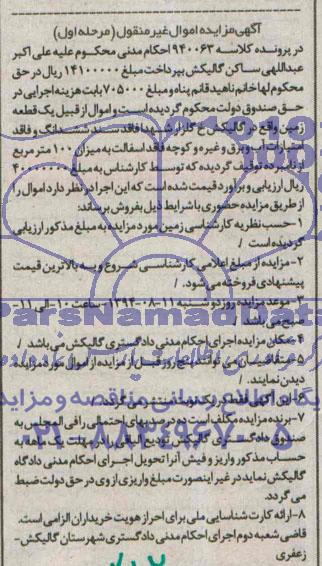 آگهی مزایده اموال غیر منقول (مرحله اول)
در پرونده کلاسه ۹۴۰۰۶۳ احکام مدنی محکوم علیه علی اکبر
عبداللهی ساکن گالیکش بپرداخت مبلغ ۱۴۱۰۰۰۰۰ ریال در حق
محکوم لها خانم ناهید قانم پناه و مبلغ ۷۰۵۰۰۰ بابت هزینه اجرایی در
حق صندوق دولت محکوم گردیده است و اموال از قبیل یک قطعه
زمین واقع در گالیکش خ گلزار شهدا فاقد سند ششدانگ و فاقد
امتیازات آب و برق و غیره و کوچه فاقد اسفالت به میزان ۱۰۰ متر مربع
از نامبرده توقیف گردیده که توسط کارشناس به مبلغ ۴۰۰۰۰۰۰۰
ریال ارزیابی و برآورد قیمت شده است که این اجرا در نظر دارد اموال را
از طریق مزایده حضوری با شرایط ذیل بفروش برساند:
۱-حسب نظریه کارشناسی زمین مورد مزایده به مبلغ مذکور ارزیابی
گردیده است /
۲-مزایده از مبلغ اعلامی کارشناسی شروع و به بالاترین قیمت
پیشنهادی فروخته می شود. /
۳-موعد مزایده روز دوشنبه ۱۱-۰۸-۱۳۹۴-ساعت ۱۰-الی ۱۱-
صبح می باشد /
۴-مکان مزایده اجرای احکام مدنی دادگستری گالیکش می باشد /
۵-متقاضیان می توانند پنج روز قبل از مزایده از اموال مورد مزایده
دیدن نمایند. /
۶-این آگهی فقط در یک نوبت منتشر می گردد. /
۷-برنده مزایده مکلف است ده درصد بهای احتمالی را فی المجلس به
صندوق دادگستری گالیکش تودیع الباقی را در مهلت یک ماهه به
حساب مذکور واریز و فیش آنرا تحویل اجرای احکام مدنی دادگاه
گالیکش نماید در غیر اینصورت مبلغ واریزی از وی در حق دولت ضبط
می گردد.
۸-ارائه کارت شناسایی ملی برای احراز هویت خریداران الزامی است.
قاضی شعبه دوم اجرای احکام مدنی دادگستری شهرستان گالیکش-
زعفری
ParsNamadData
پایگاه اطلاع رسانی مناقصه و مزایده
۰۲۱-۸۸۳۴۹۶۷۰-۵